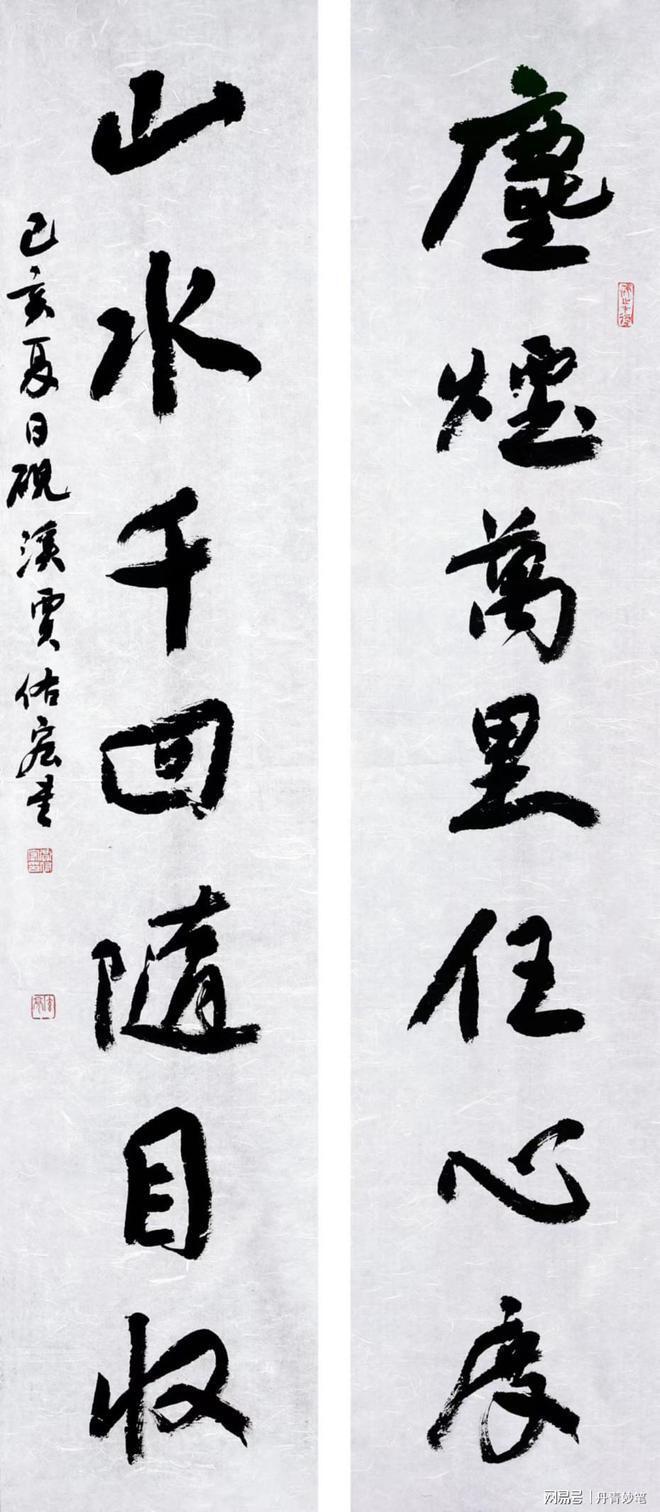 塵煙萬里任心度
山水千回隨目收
己亥夏日硯溪賈佑宏書
网易号 | 丹青妙笔